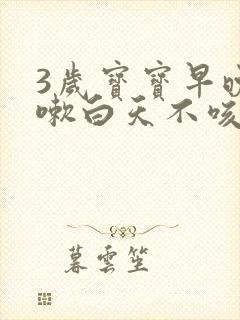 3歲寶寶早晚
嗽白天不咳
暮雲笙